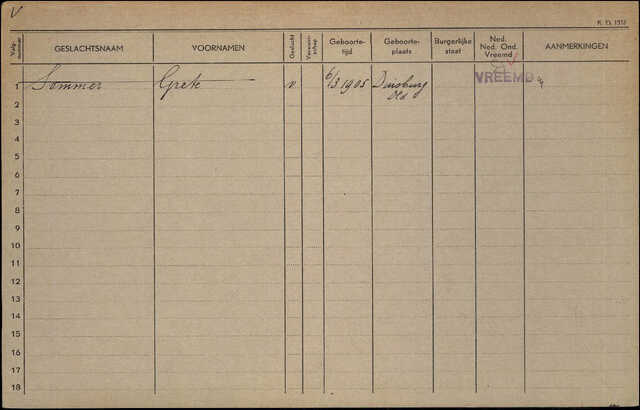 V
K. D. 1512
Volg-nummer GESLACHTSNAAM VOORNAMEN Geslacht Verwantschap Geboorte-tijd Geboorte-plaats Burgerlijke staat Ned. Ned. Ond. Vreemd AANMERKINGEN
1 Sommer Grete v. 6/3 1905 Duisburg VREEMD
Dld
2
3
4
5
6
7
8
9
10
11
12
13
14
15
16
17
18